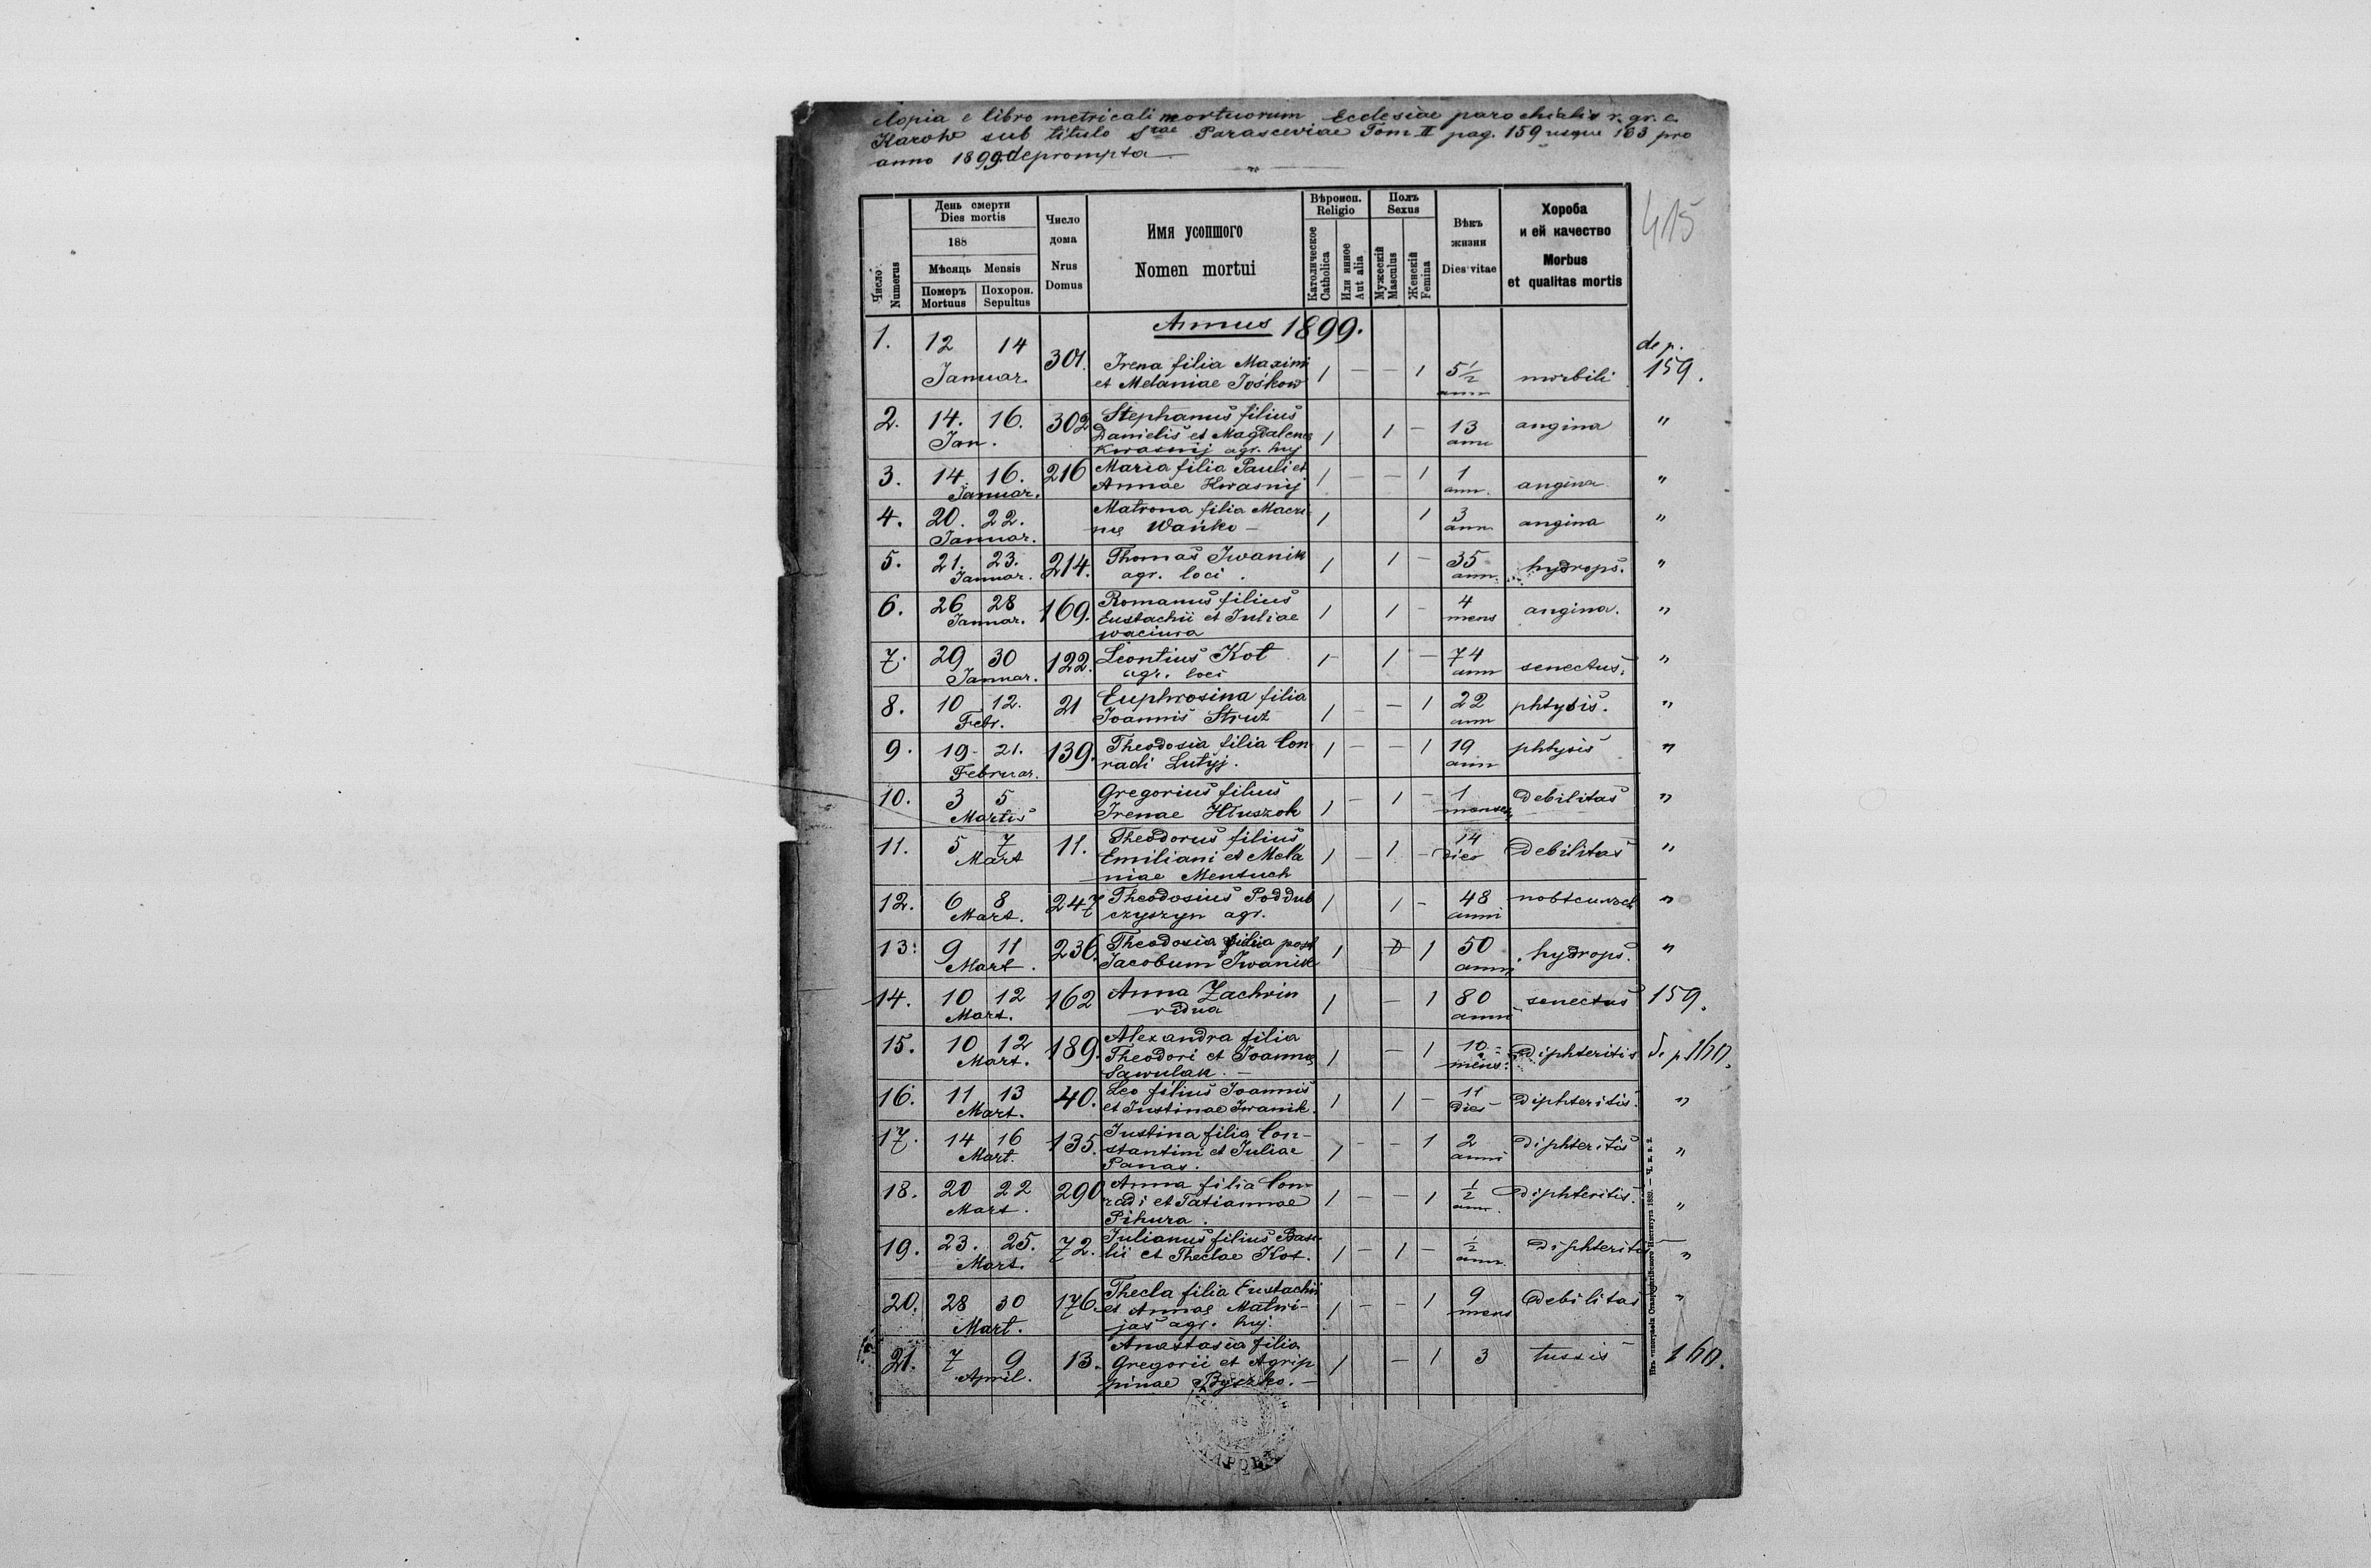 Copia e libro metricali mortuorum Ecclesiae parochialis r. gr. c.
Karow sub titulo S.tae Parasceviae Tom II pag. 159 usque 163 pro
anno 1899 deprompta
415
Число Numerus
День смерти
Dies mortis
188
Мѣсяць Mensis
Померъ Похорон.
Mortuus Sepultus
Число
дома
Nrus
Domus
Имя усопшого
Nomen mortui
Вѣроисп.
Religio
Католическое Catholica
Или инное Aut alia
Полъ
Sexus
Мужескій Masculus
Женскій Femina
Вѣкъ
жизни
Dies vitae
Хороба
и ей качество
Morbus
et qualitas mortis
Annus 1899.
1. 12 14 Januar. 301. Irena filia Maximi 1 — — 1 5 1/2 ann morbili de p. 159.
et Melaniae Jośkow
2. 14. 16. Jan. 302 Stephanus filius 1 1 — 13 ann angina "
Danielis et Magdalenae
Kwasnij agr. huj
3. 14. 16. Januar. 216 Maria filia Pauli et 1 — — 1 1 ann. angina "
Annae Kwasnij
4. 20. 22. Januar. Matrona filia Macri- 1 1 3 ann angina "
nę Wańko —
5. 21. 23. Januar. 214. Thomas Iwanik 1 1 — 35 ann. hydrops. "
agr. loci.
6. 26 28 Januar. 169. Romanus filius 1 1 - 4 mens angina. "
Eustachii et Juliae
waciura
7. 29 30 Januar. 122. Leontius Kot 1 1 — 74 ann senectus. "
agr. loci
8. 10 12. Febr. 21 Euphrosina filia 1 - — 1 22 ann phtysis. "
Joannis Struż
9. 19- 21. Februar. 139. Theodosia filia Con- 1 — — 1 19 ann phtysis "
radi Lutyj.
10. 3 5 Martis Gregorius filius 1 — 1 — 1 debilitas "
Irenae Hłuszok
11. 5 7 Mart 11. Theodorus filius 1 — 1 — 14 dies debilitas "
Emiliani et Mela
niae Mentuch
12. 6 8 Mart. 247 Theodosius Poddub 1 1 - 48 anni "
czyszyn agr.
13. 9 11 Mart. 236. Theodosia filia post 1 1 50 anni hydrops. "
Jacobum Iwanik
14. 10 12 Mart. 162 Anna Zachrin 1 — 1 80 anni senectus 159.
vidua
15. 10 12 Mart. 189. Alexandra filia 1 — 1 10 mens. diphteritis d. p. 160.
Theodori et Joannę
Sawulak. —
16. 11 13 Mart. 40. Leo filius Joannis 1 1 — 11 dies diphteritis. "
et Justinae Iwanik.
17. 14 16 Mart. 135. Justina filia Con- 1 — - 1 2 anni diphteritis "
stantini et Juliae
Panas.
18. 20 22 Mart. 290 Anna filia Con- 1 — — 1 1/2 ann. diphteritis. "
radi et Tatiannae
Pihura.
19. 23. 25. Mart. 72. Julianus filius Basi- 1 — 1 — 1/2 ann. diphteritis "
lii et Theclae Kot.
20. 28 30 Mart. 176. Thecla filia Eustachii 1 — - 1 9 mens debilitas "
et Annae Matwi-
jas agr. huj.
21. 7 9 April. 13. Anastasia filia 1 — 1 3 tussis 160.
Gregorii et Agrip
pinae Byszko. —
Изъ типографіи Ставропигійского Института 1889. — Ч. к. з. 2.